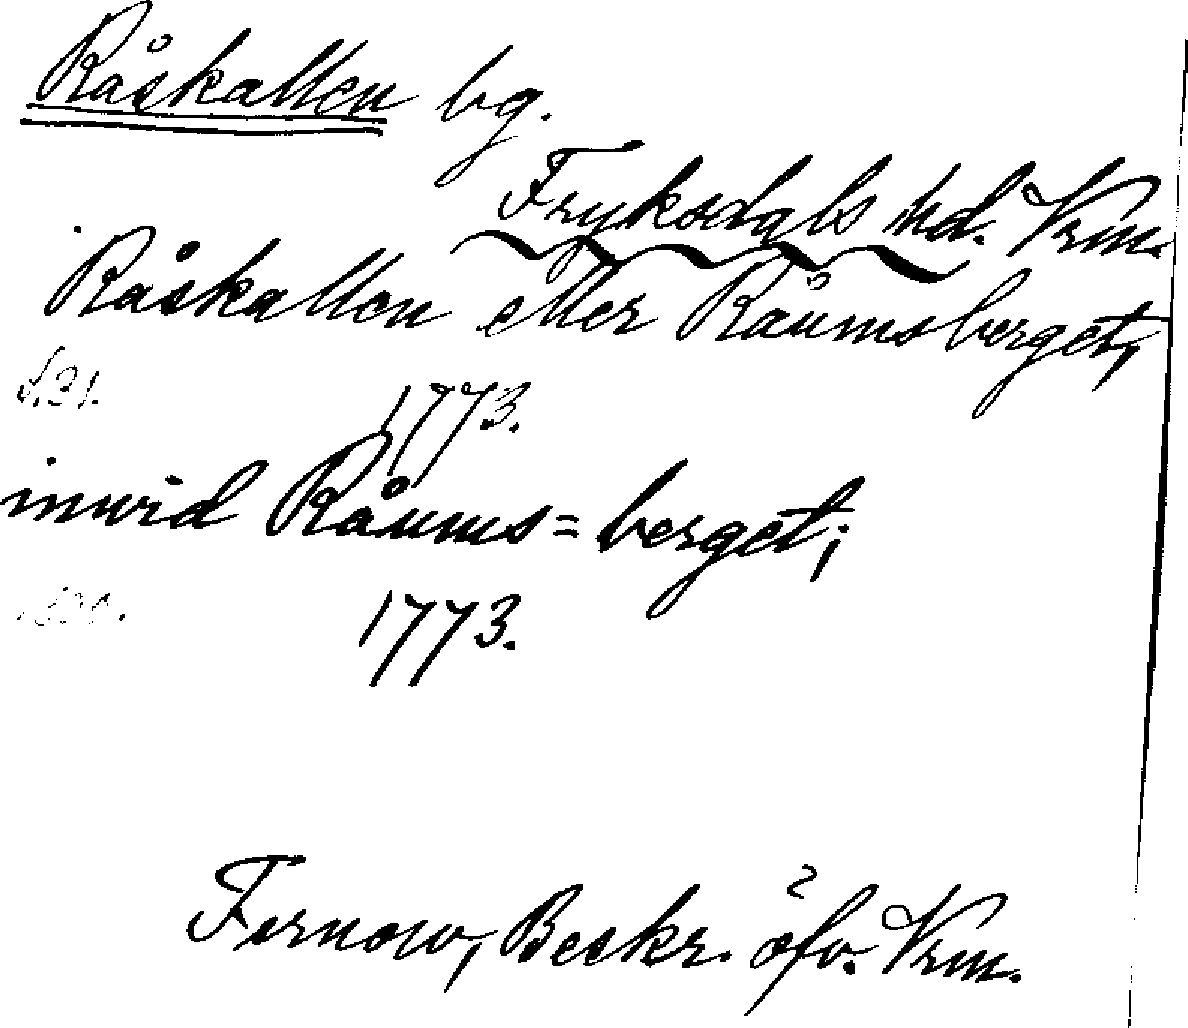 Råskallen bg.
Fryksdals hd. Vrm.
Råskallen eller Råumsberget,
s. 21. 1773.
inwid Råums=berget;
1773.
Fernow, Beskr. öfv. Vrm.